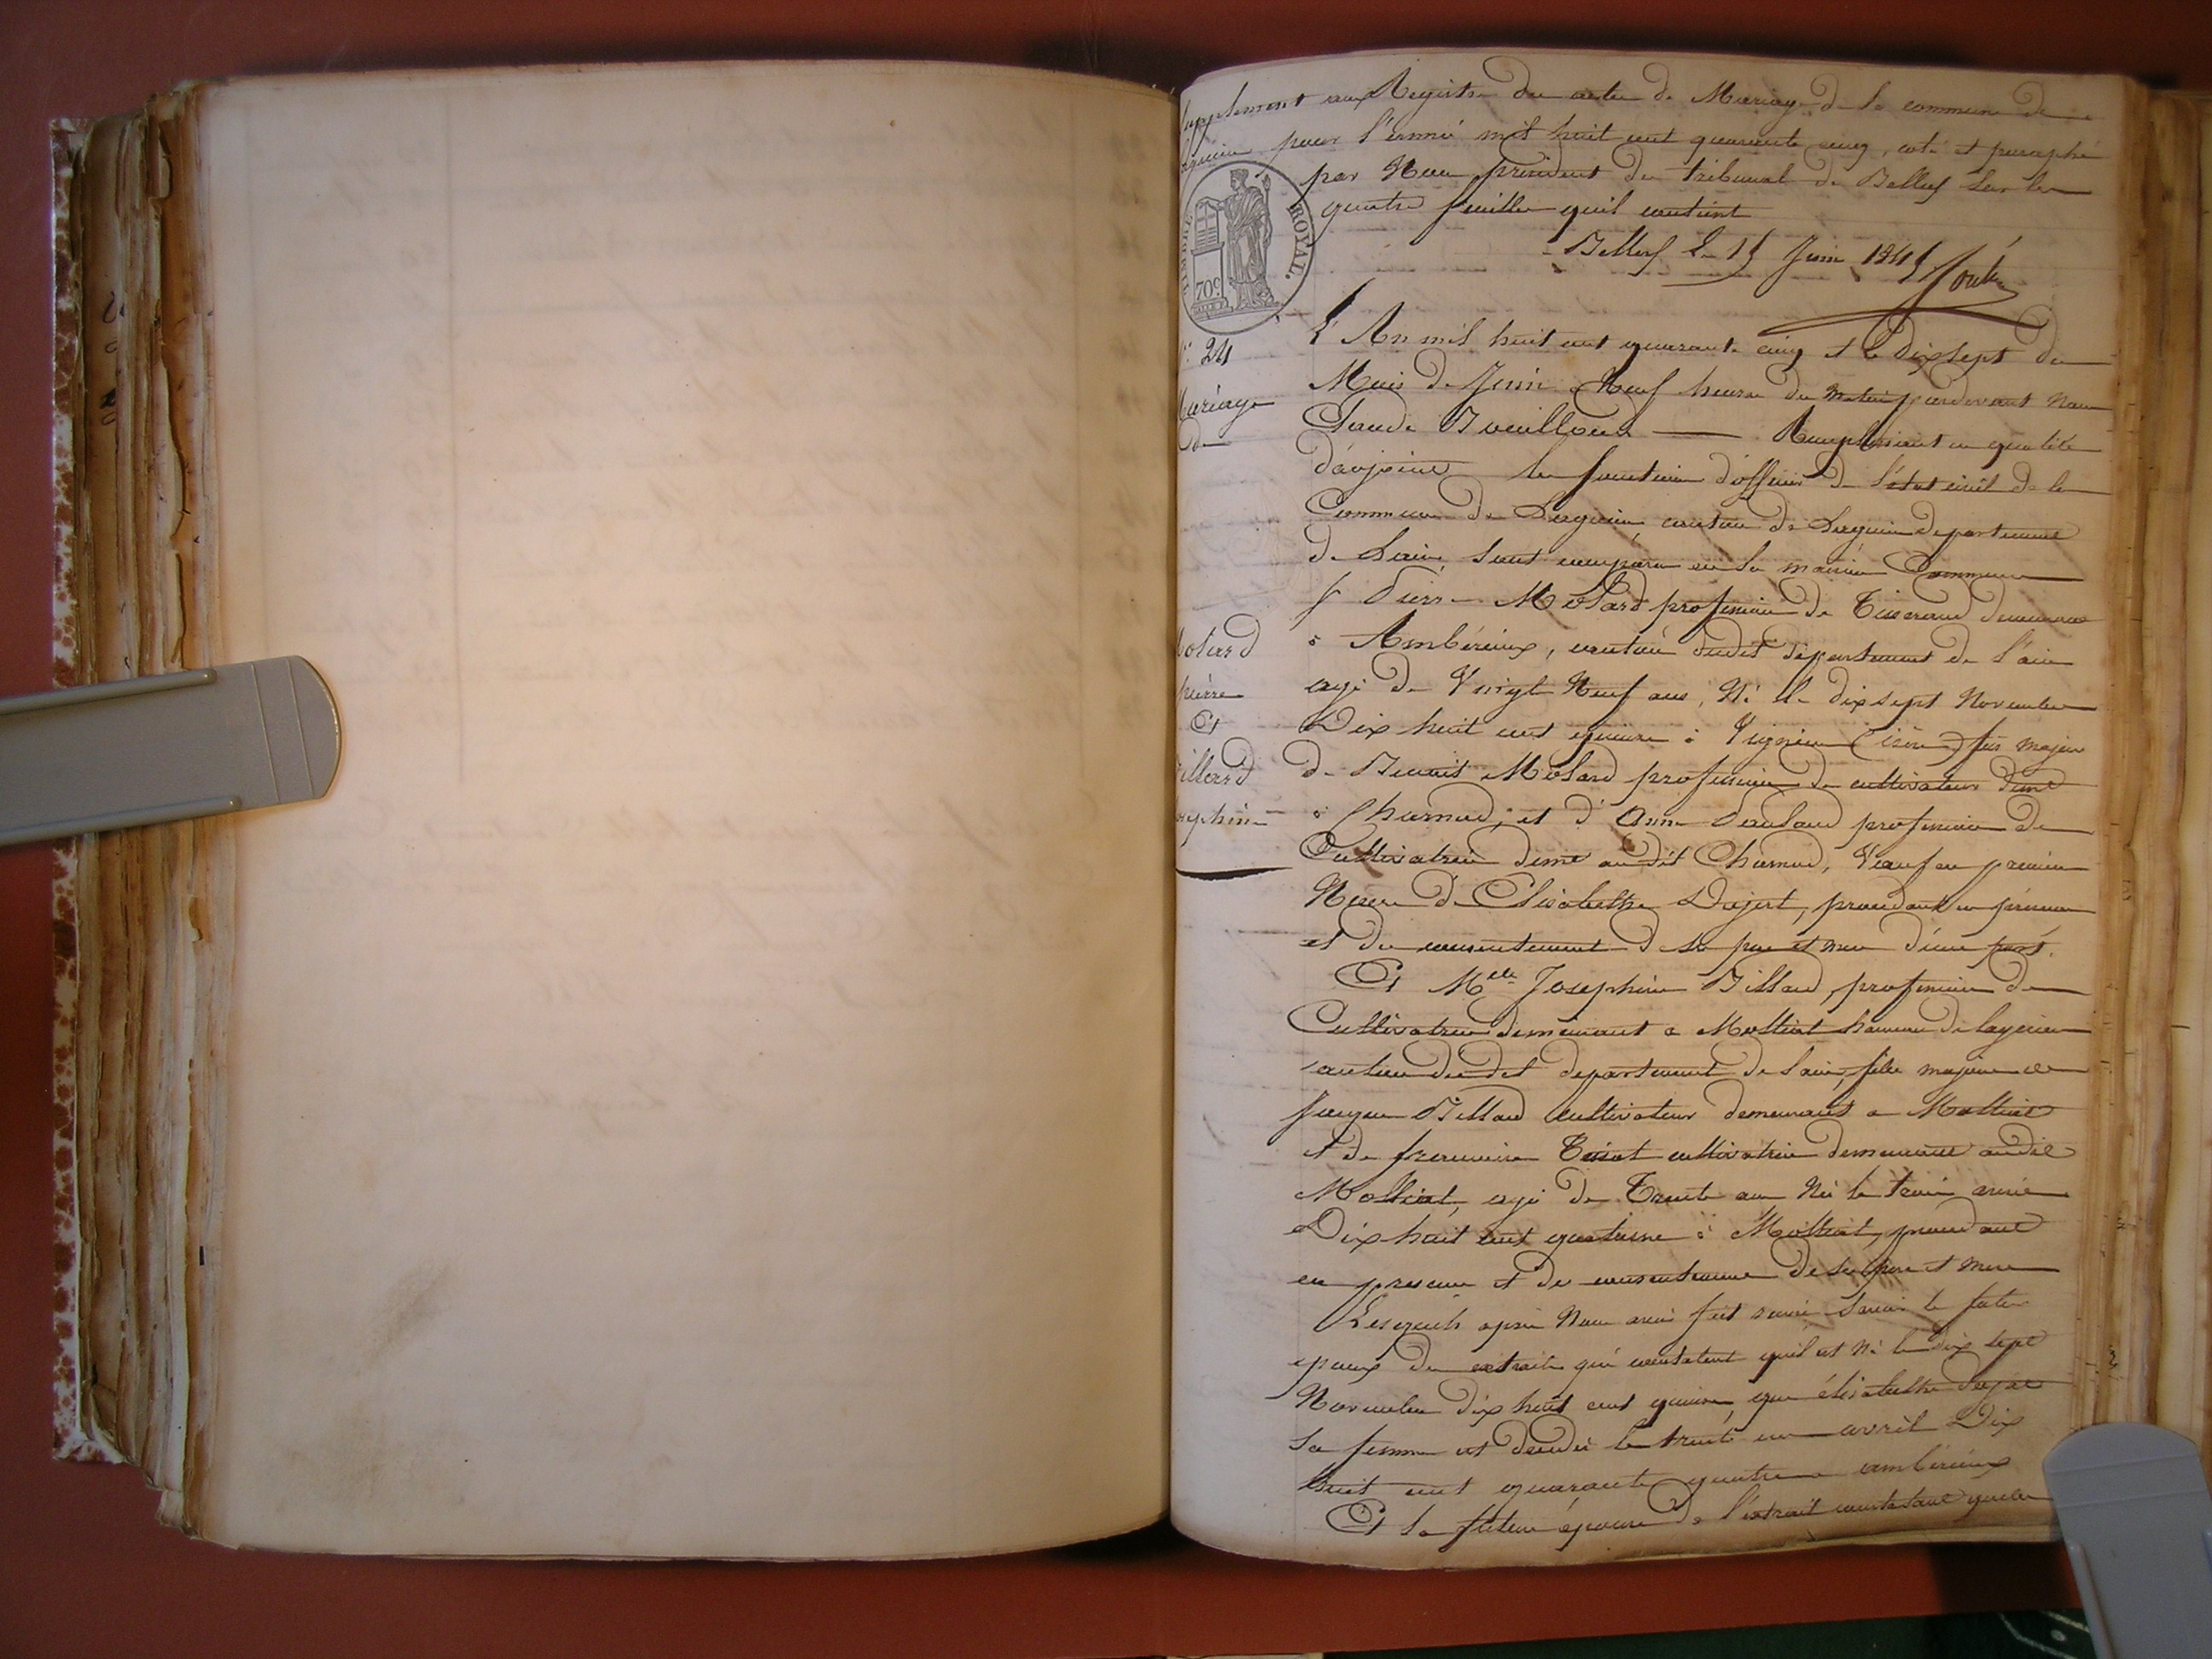 supplement aux Registre des actes de Mariage de la commune de
Lagnieu pour l'année mil huit cent quarante cinq, coté et paraphé
par Nous président du tribunal de Belley sur les
quatre feuilles quil contient
Belley le 15 Juin 1845
TIMBRE ROYAL.
70c
N° 24
Mariage
de
Molard
pierre
Et
Billard
josephine
L'An mil huit cent quarante cinq et le dix sept du
Mois de Juin a Neuf heures du matin pardevant Nous
Claude Remplissant en qualité
d'adjoint les fonctions d'officier de l'état civil de la
Commune de Lagnieu, canton de Lagnieu departement
de Lain, sont comparu en la mairie Commune
s Pierre Molard profession de Tisserand demeurant
à Ambérieux, canton dudit département de l'ain
agé de Vingt Neuf ans, Né le dix sept Novembre
Dix huit cent quinze à (isère) fils majeur
de Benoit Molard profession de cultivateur demt
à Charnoud, et d'Anne profession de
Cultivatrice demt au dit Charnoud, Veuf en premier
Noces de Elisabethe Dujert, procedant en présence
et du consentement de ses pere et mere d'une part.
Et Melle Josephine Billard, profession de
Cultivatrice demeurant a Molliat hameau de lagnieu
canton dudit departement de lain, fille majeure de
Jacque Billard cultivateur demeurant a Molliat
et de francoise cultivatrice demeurant audit
Molliat, agé de Trente ans Né le trois
Dix huit cent quatorze à Molliat, procedant
en presence et du consentement de ses pere et mere
Lesquels après Nous avoir fait savoir le futur
epoux des extraits qui constatent quil est Né le dix sept
Novembre dix huit cent quinze, que élisabethe
sa femme est decedée le trente un avril Dix
huit cent quarante quatre a ambérieux
Et la future épouse de l'extrait constatant quelle